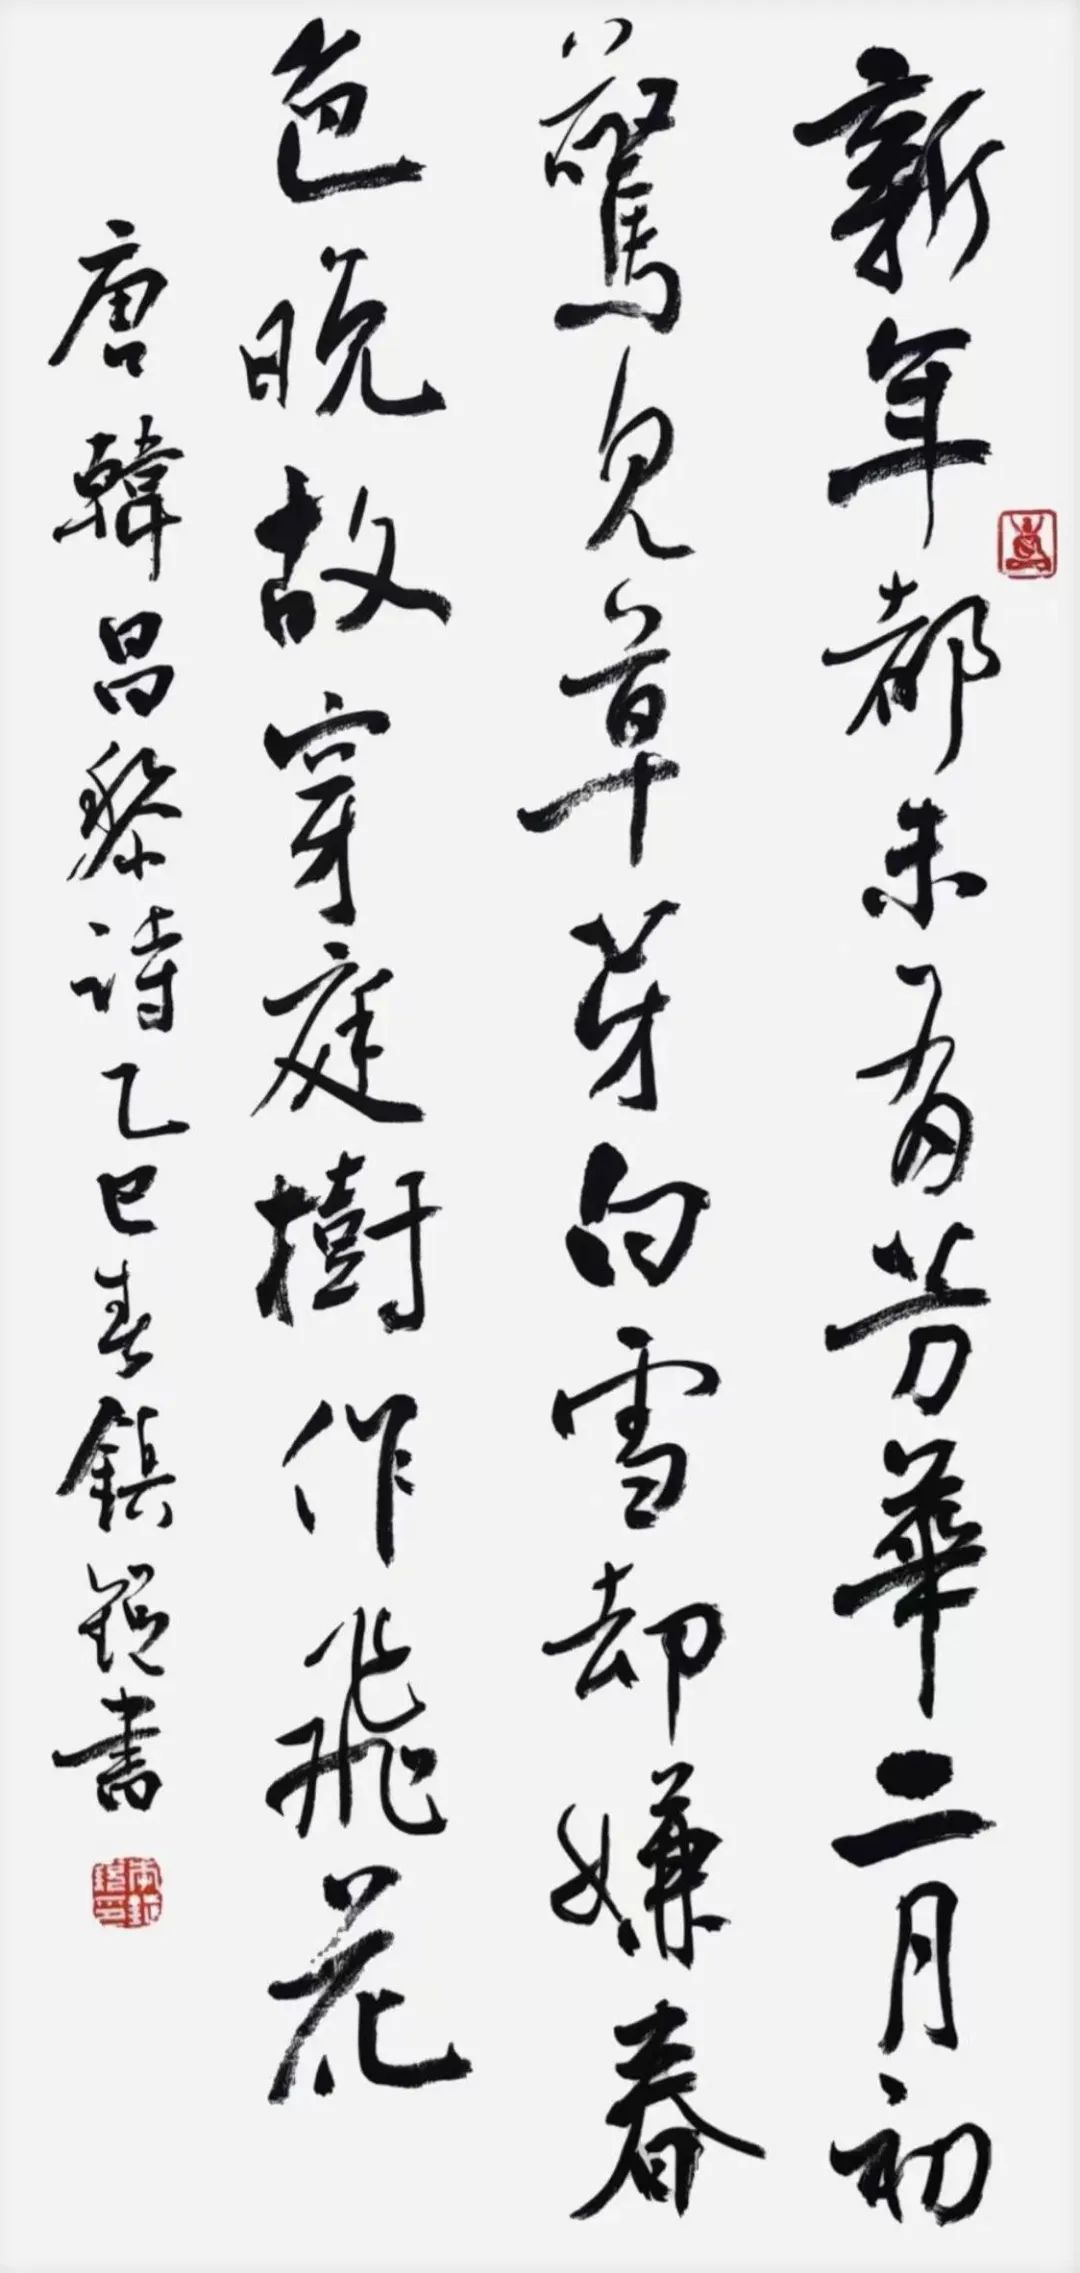 新年都未有芳華二月初
驚見草芽白雪却嫌春
色晚故穿庭樹作飛花
唐韓昌黎詩乙巳春鎮鋭書